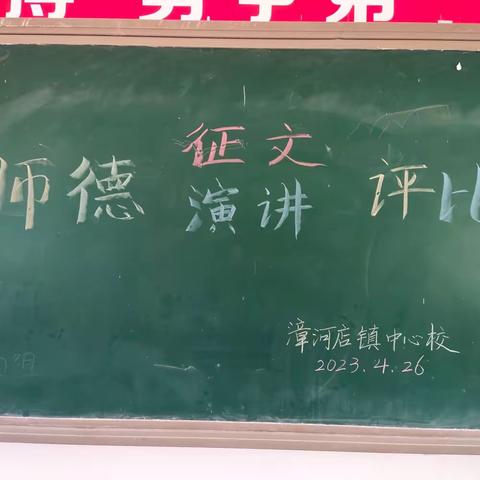 师德 征文 演讲 评比
漳河店镇中心校
2023.4.26